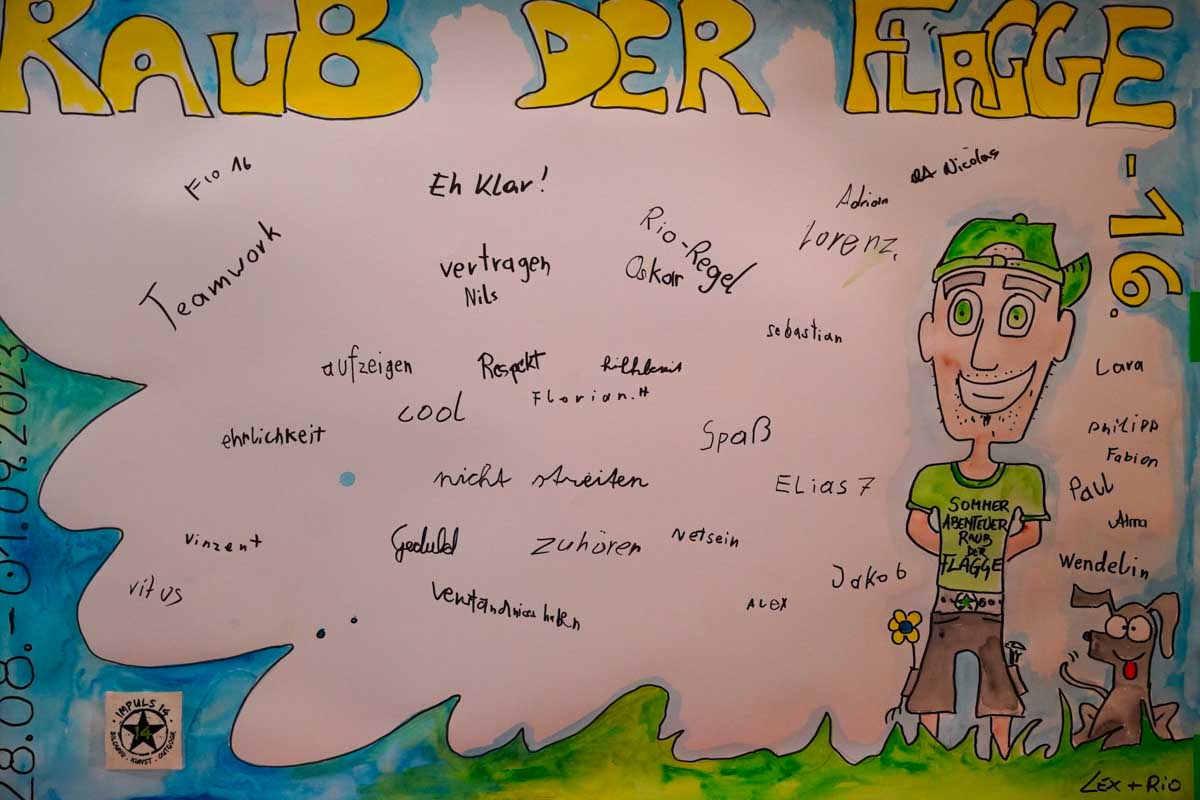 RAUB DER FLAGGE
-16.
28.08.-01.09.2023
Flo 16
Eh Klar!
Adrian
Nicolas
Teamwork
vertragen
Nils
Rio-Regel
Oskar
Lorenz.
sebastian
aufzeigen
Respekt
Florian.H
cool
ehrlichkeit
Spaß
nicht streiten
ELias 7
vinzent
Geduld
zuhören
Netsein
vitus
Jakob
ALEX
Lara
PHiLiPP
Fabian
Paul
Alma
Wendelin
SOMMER
ABENTEUER
RAUB
DER
FLAGGE
IMPULS 14
14
BILDUNG · KUNST · OUTDOOR
LEX + Rio